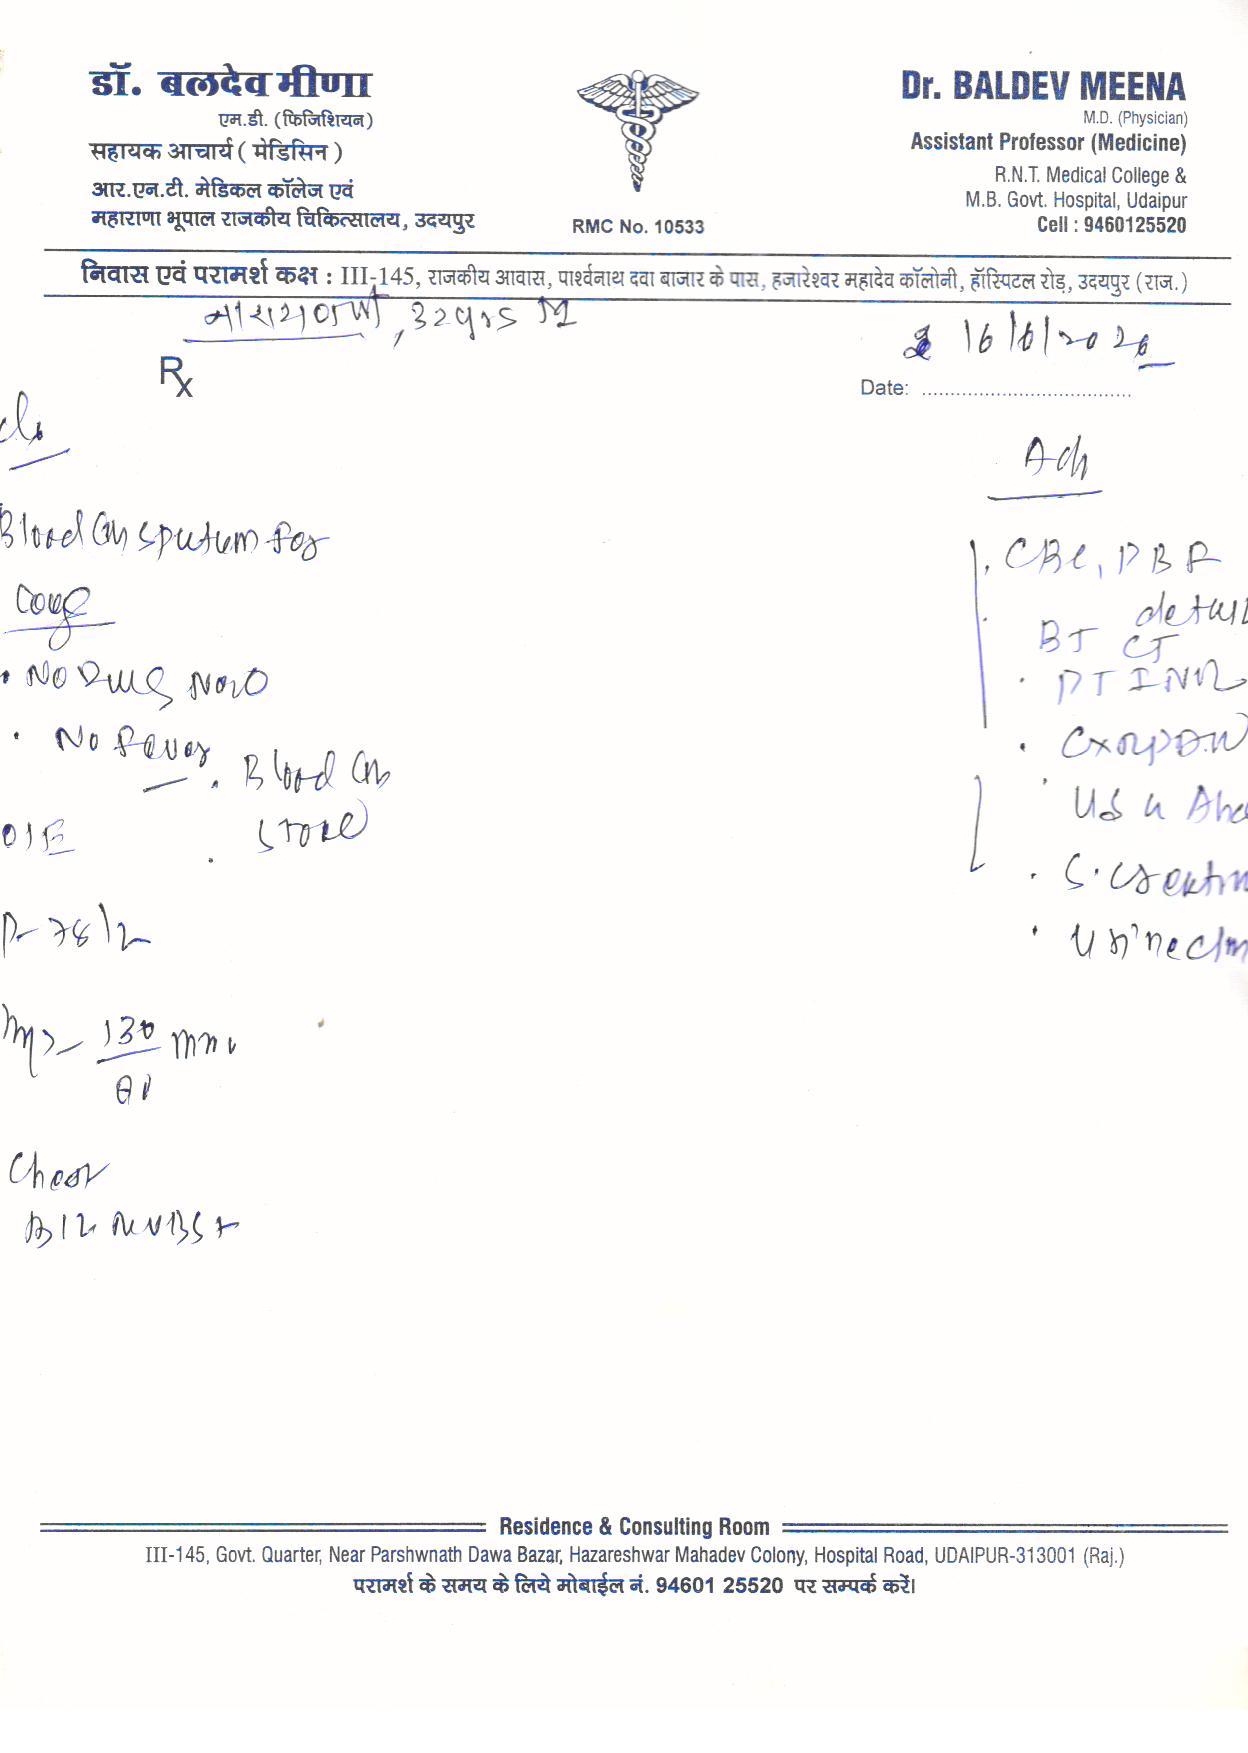 डॉ. बलदेव मीणा
एम.डी. (फिजिशियन)
सहायक आचार्य ( मेडिसिन )
आर.एन.टी. मेडिकल कॉलेज एवं
महाराणा भूपाल राजकीय चिकित्सालय, उदयपुर
RMC No. 10533
Dr. BALDEV MEENA
M.D. (Physician)
Assistant Professor (Medicine)
R.N.T. Medical College &
M.B. Govt. Hospital, Udaipur
Cell : 9460125520
निवास एवं परामर्श कक्ष : III-145, राजकीय आवास, पार्श्वनाथ दवा बाजार के पास, हजारेश्वर महादेव कॉलोनी, हॉस्पिटल रोड़, उदयपुर (राज.)
32 yrs M
16/6/2020
Rx
Date:
Adv
Blood in sputum for
• No Drug Now
• No fever
. Blood in
stool
O/E
P- 78/2
130 mm
Chest
CBC, PBF
BT CT
• PT INR
Residence & Consulting Room
III-145, Govt. Quarter, Near Parshwnath Dawa Bazar, Hazareshwar Mahadev Colony, Hospital Road, UDAIPUR-313001 (Raj.)
परामर्श के समय के लिये मोबाईल नं. 94601 25520 पर सम्पर्क करें।